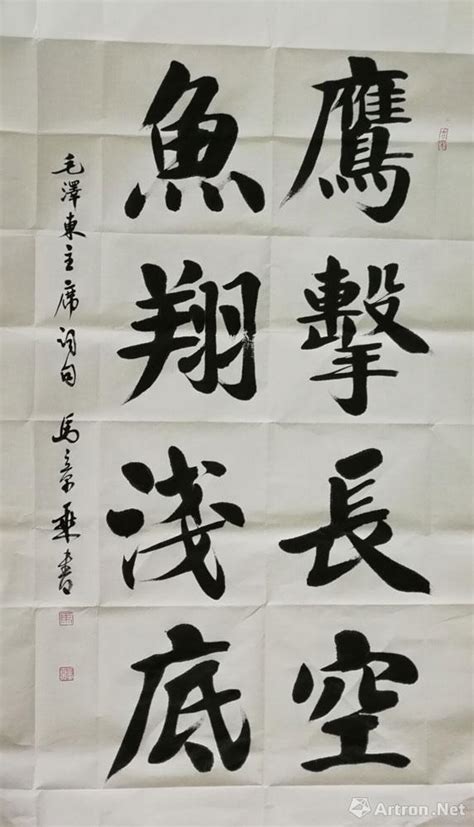 鷹擊長空
魚翔淺底
毛澤東主席词句 馬章乘書
Artron.Net